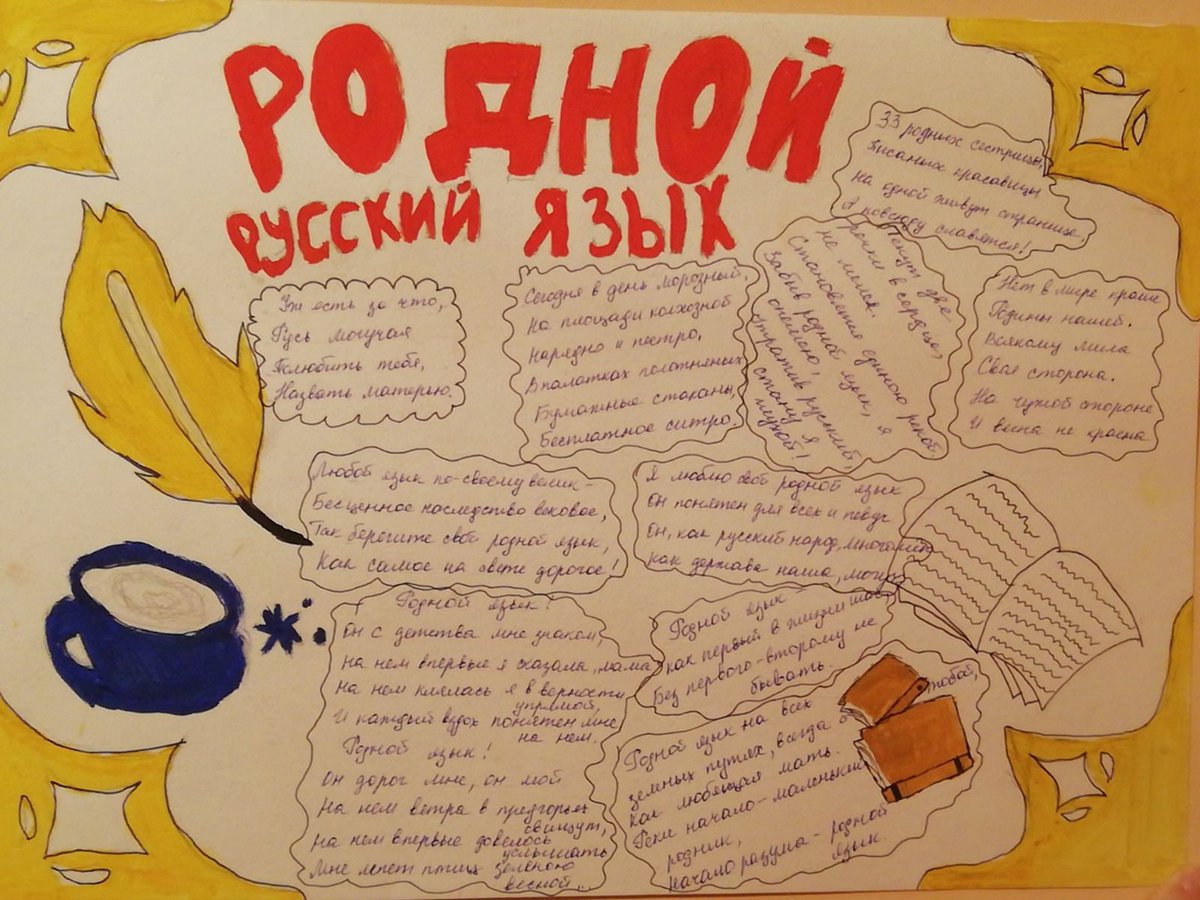 РОДНОЙ
РУССКИЙ ЯЗЫК
33 родных сестрицы,
Писаных красавицы
На одной живут странице,
А повсюду славятся!
Уж есть за что,
Русь могучая
Полюбить тебя,
Назвать матерью.
Сегодня в день морозный.
На площади колхозной
Нарядно и пестро,
В палатках полотняных
Бумажные стаканы,
Бесплатное ситро.
Текут две
речки в сердце,
не мелея.
Становятся единою рекой,
Забыв родной язык, я
онемею,
Утратив русский,
стану я
глухой!
Нет в мире краше
Родины нашей.
Всякому мила
Своя сторона.
На чужой стороне
И весна не красна
Любой язык по-своему велик -
Бесценное наследство вековое,
Так берегите свой родной язык,
Как самое на свете дорогое!
Я люблю свой родной язык
Он понятен для всех и певуч
Он, как русский народ, многолик
как держава наша, могуч
Родной язык!
Он с детства мне знаком,
На нем впервые я сказала „мама
На нем клялась я в верности
упрямой,
И каждый вздох понятен мне
на нем.
Родной язык!
Он дорог мне, он мой
На нем ветра в предгорьях
свищут,
На нем впервые довелось
услышать
Мне лепет птиц зеленою
весной..
Родной язык
как первый в жизни шаг
Без первого - второму не
бывать.
Родной язык на всех
земных путях, всегда с тобой,
Как любящая мать.
Реки начало - маленький
родник,
Начало разума - родной
язык